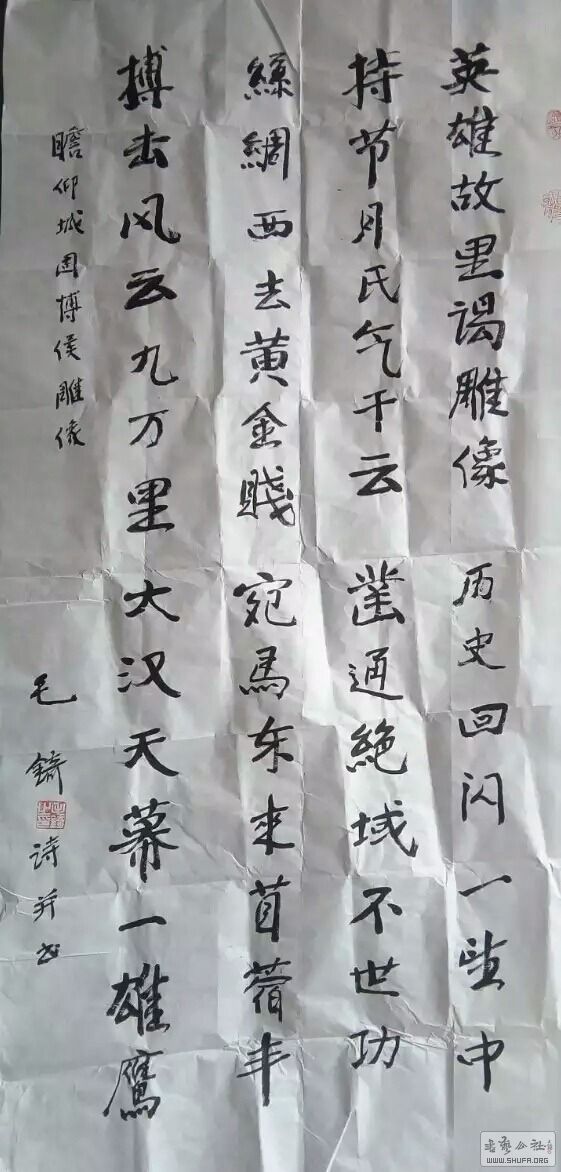 英雄故里谒雕像 历史回闪一望中
持节月氏气干云 凿通絶域不世功
絲綢西去黄金賤 宛馬东来苜蓿丰
搏击风云九万里 大汉天幕一雄鷹
瞻仰城固博侯雕像
毛錡 诗并书
书艺公社
WWW.SHUFA.ORG